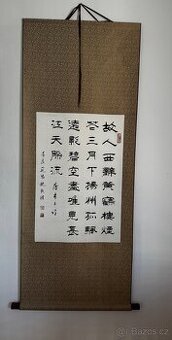 故人西辭黃鶴樓煙
花三月下揚州孤帆
遠影碧空盡唯見長
江天際流
Bazoš.cz